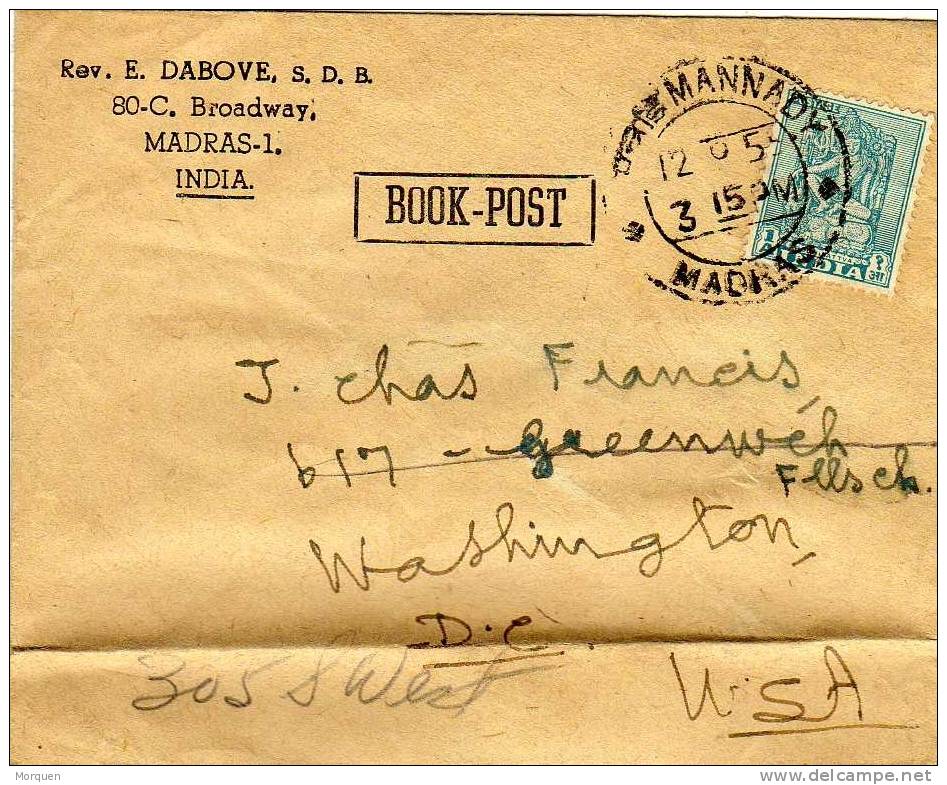 Rev. E. DABOVE, S. D. B.
80-C. Broadway,
MADRAS-1.
INDIA.
BOOK-POST
MANNADY
12 5
3 15 PM
MADRAS
INDIA
J. Chas Francis,
617 - Greenwéh
Washington,
D.C.
U.S.A
305 S West
Morquen
delcampe.net